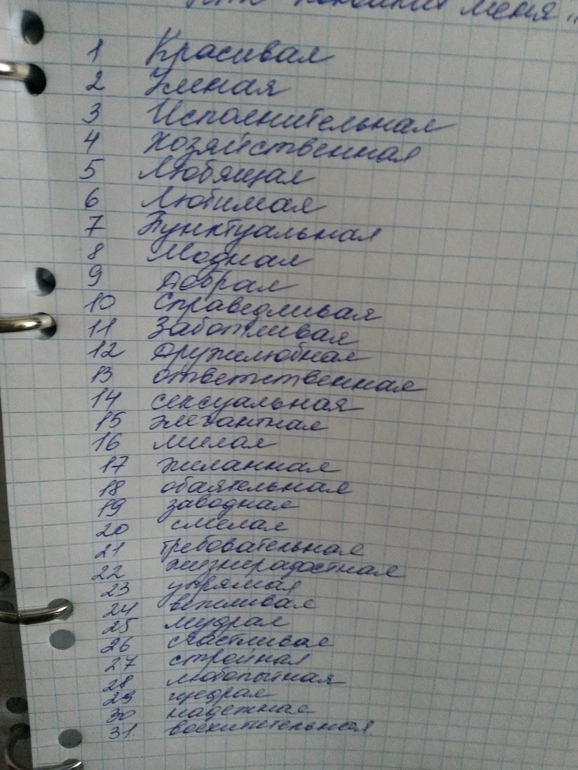 меня"
1 Красивая
2 Умная
3 Исполнительная
4 Хозяйственная
5 Любящая
6 Любимая
7 Пунктуальная
8 Модная
9 Добрая
10 Справедливая
11 Заботливая
12 Дружелюбная
13 ответственная
14 сексуальная
15 элегантная
16 милая
17 желанная
18 обаятельная
19 заводная
20 смелая
21 требовательная
22 жизнерадостная
23 упрямая
24 вежливая
25 мудрая
26 счастливая
27 стройная
28 любопытная
29 щедрая
30 надежная
31 восхитительная